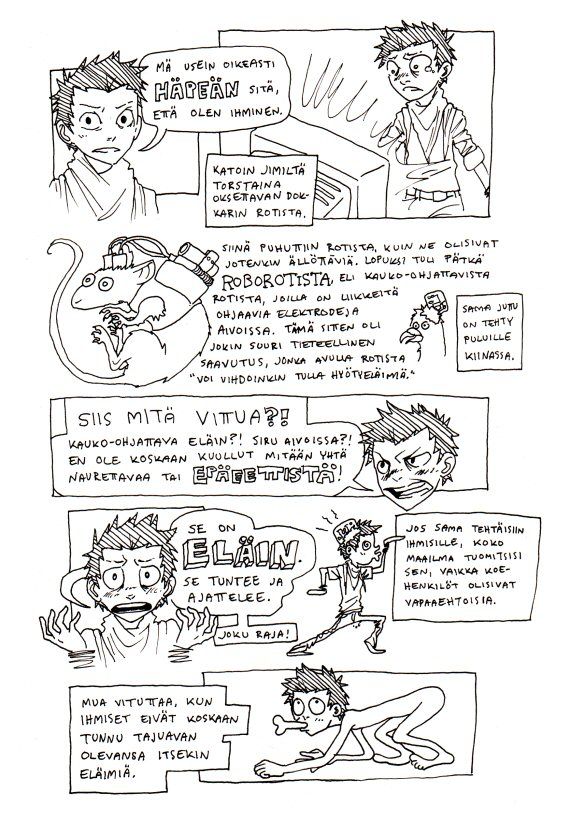 MÄ USEIN OIKEASTI
HÄPEÄN SITÄ,
ETTÄ OLEN IHMINEN.
KATOIN JIMILTÄ
TORSTAINA
OKSETTAVAN DOK-
KARIN ROTISTA.
SIINÄ PUHUTTIIN ROTISTA, KUIN NE OLISIVAT
JOTENKIN ÄLLÖTTÄVIÄ. LOPUKSI TULI PÄTKÄ
ROBOROTISTA, ELI KAUKO-OHJATTAVISTA
ROTISTA, JOILLA ON LIIKKEITÄ
OHJAAVIA ELEKTRODEJA
AIVOISSA. TÄMÄ SITEN OLI
JOKIN SUURI TIETEELLINEN
SAAVUTUS, JONKA AVULLA ROTISTA
"VOI VIHDOINKIN TULLA HYÖTYELÄIMIÄ."
SAMA JUTTU
ON TEHTY
PULUILLE
KIINASSA.
SIIS MITÄ VITTUA?!
KAUKO-OHJATTAVA ELÄIN?! SIRU AIVOISSA?!
EN OLE KOSKAAN KUULLUT MITÄÄN YHTÄ
NAURETTAVAA TAI EPÄEETTISTÄ!
SE ON
ELÄIN.
SE TUNTEE JA
AJATTELEE.
JOKU RAJA!
JOS SAMA TEHTÄISIIN
IHMISILLE, KOKO
MAAILMA TUOMITSISI
SEN, VAIKKA KOE-
HENKILÖT OLISIVAT
VAPAAEHTOISIA.
MUA VITUTTAA, KUN
IHMISET EIVÄT KOSKAAN
TUNNU TAJUAVAN
OLEVANSA ITSEKIN
ELÄIMIÄ.